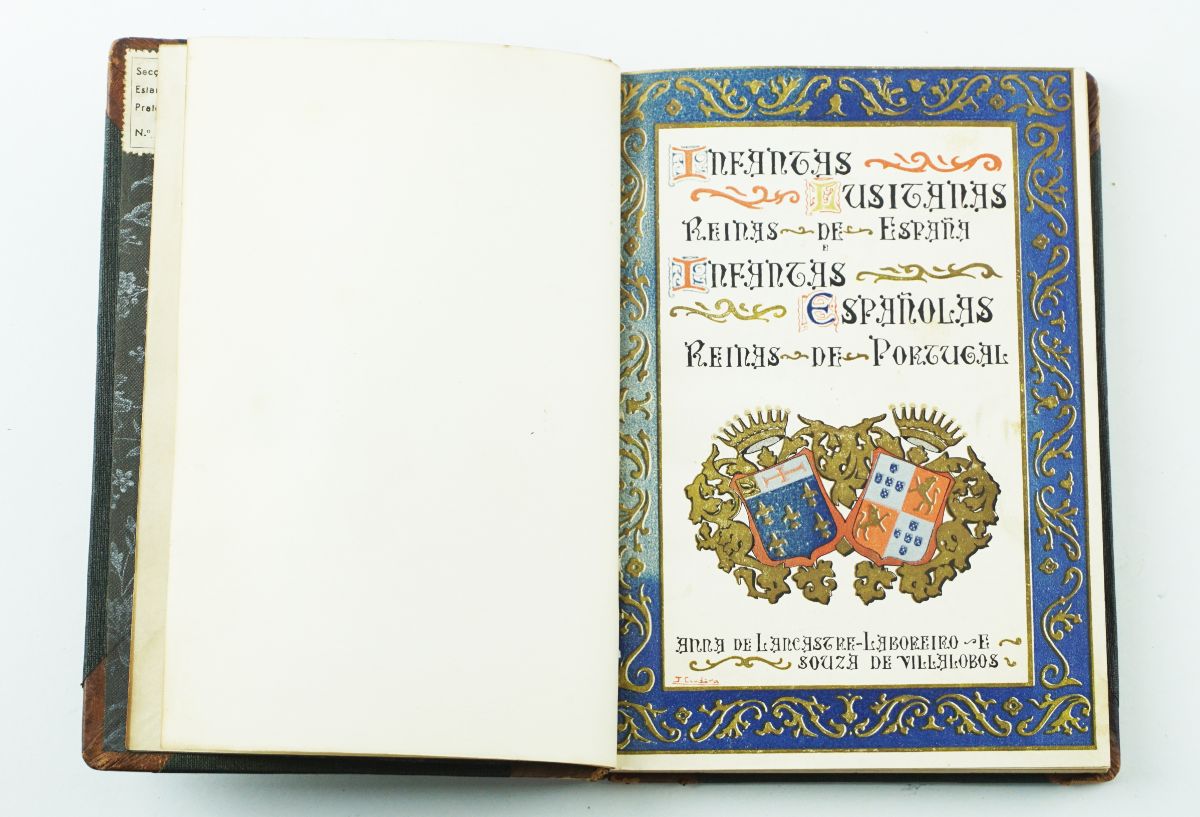 Secç
Estan
Prate
N.º
INFANTAS
LUSITANAS
REINAS DE ESPAÑA
E
INFANTAS
ESPAÑOLAS
REINAS DE PORTUGAL
ANNA DE LANCASTRE-LABOREIRO E
SOUZA DE VILLALOBOS